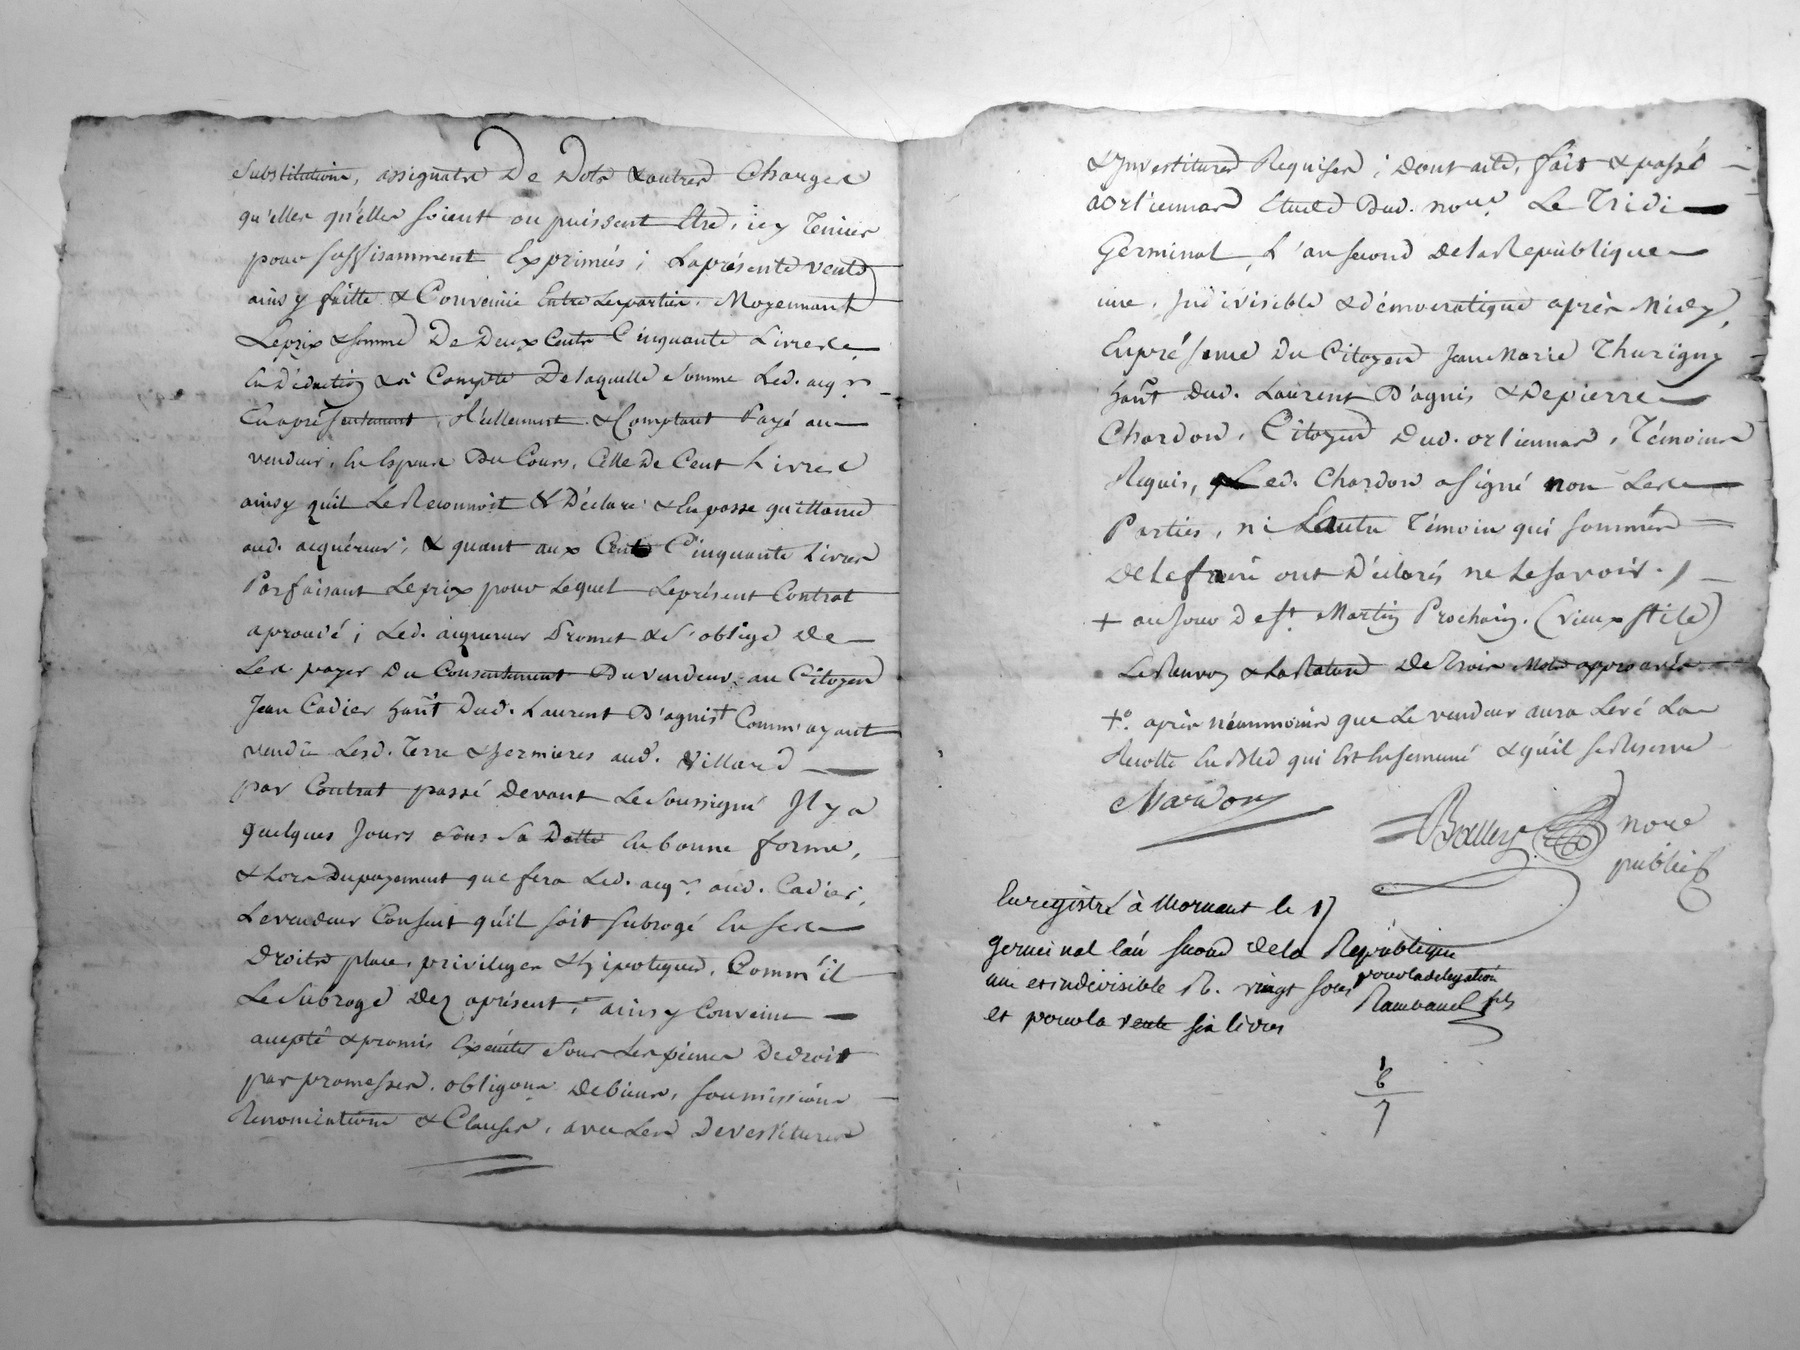 Substitutions, assignats De Dots & autres Charges
qu'elles qu'elles soient ou puissent Etre, icy Tenues
pour suffisamment Exprimées ; La présente vente
ainsy faitte & Convenüe Entre Les parties. Moyennant
Le prix & somme De Deux Cents Cinquante Livres
En Déduction & à Compte De laquelle somme Led. acqr.
En a présentement, Réellement & Comptant Payé au
vendeur, En Espèces Du Cours, Celle De Cent Livres
ainsy qu'il Le Reconnoit & Déclare & En passe quittance
aud. acquéreur ; & quant aux Cent Cinquante Livres
Parfaisant Le prix pour Lequel Le présent Contrat
a prouvé ; Led. acquereur Promet & s'oblige De
Les payer Du Consentement Du vendeur, au Citoyen
Jean Cadier hant Dud. Laurent D'agnis + Comm'ayant
vendu Lesd. Terre & hermieres aud. Villard
par Contrat passé Devant Le Soussigné Il y a
quelques Jours sous sa Datte En bonne forme,
& Lors Du payement que fera Led. acqr. aud. Cadier,
Le vendeur Consent qu'il soit subrogé En ses
Droits place, privileges & hipoteques, Comm'il
Le Subroge Dez aprésent ; ainsy Convenu
accepté & promis Exécuter Sous Les peines De droit
par promesses, obligons De biens, soumissions
Renonciations & Clauses, avec Les Devestitures
& Investitures Requises ; Dont acte, fait & passé
a orliennas Etude Dud. nore Le Tridi
Germinal, L'an second De la Republique
une, Indivisible & démocratique après Midy,
En présence Du Citoyen Jean Marie Thurigny
hant Dud. Laurent D'agnis & De pierre
Chardon, Citoyen Dud. orliennas, Témoins
Requis, Led. Chardon a signé non Les
Parties, ni L'autre Témoin qui sommés
De le faire ont Déclarés ne Le savoir ./
+ au Jour De St. Martin Prochain. (vieux stile)
Le Renvoy & La Rature De Trois Mots approuvés
+° après néanmoins que Le vendeur aura Levé La
Recolte En Bled qui Est Ensemencé & qu'il se Reserve
Chardon
nore
public
Enregistré à Mornant le 17
germinal l'an second de la République
une et indivisible R. vingt sous pour la delegation
et pour la vente six livres
Rambaud fils
1
6
7